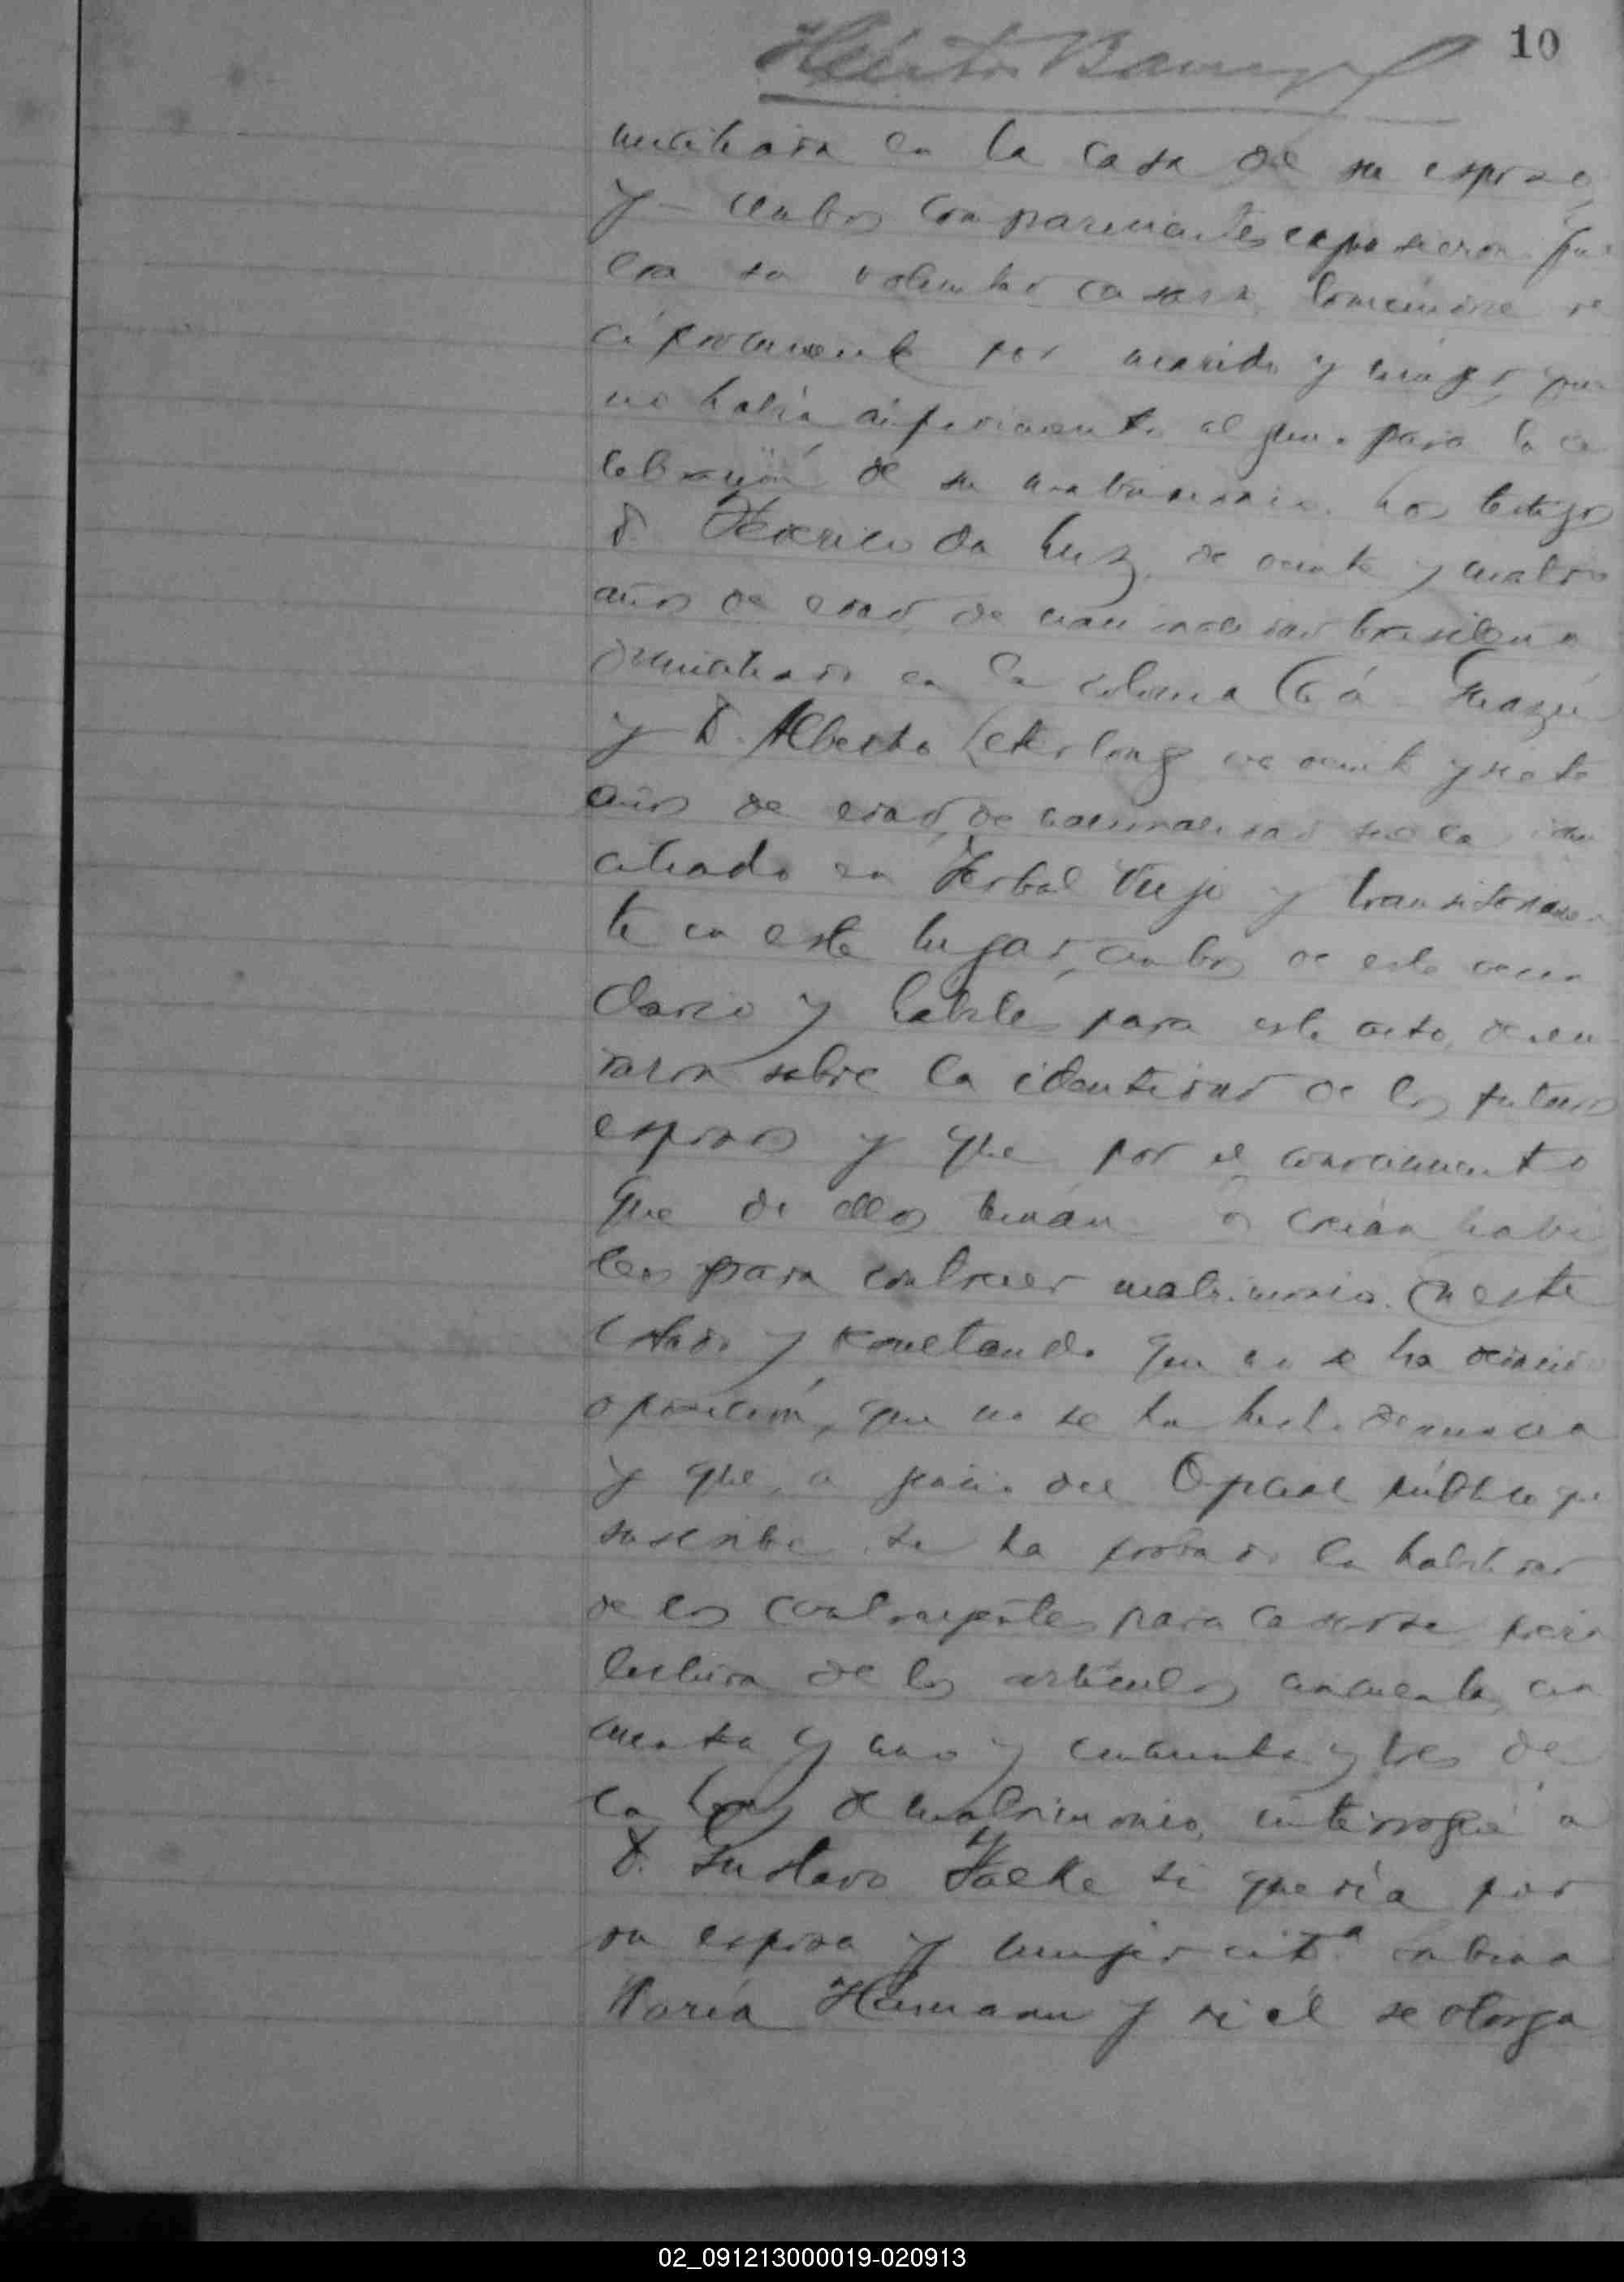 10
miciliada en la casa de su esposo
y ambos comparecientes expusieron que
era su voluntad casarse tomándose re
ciprocamente por marido y mujer, que
no había impedimento alguno para la ce
lebración de su matrimonio. Los testigos
D. Federico da Luz, de veinte y cuatro
años de edad, de nacionalidad brasilena
domiciliado en la colonia
y D. Alberto de veinte y siete
años de edad, de nacionalidad
ciliado en Yerbal Viejo y transitoriamen
te en este lugar, ambos de este vecin
dario y habiles para este acto, decla
raron sobre la identidad de los futuros
esposos y que por el conocimiento
que de ellos tenían los creían habi
les para contraer matrimonio. En este
estado y resultando que no se ha deducido
oposicion, que no se ha hecho denuncia
y que, a juicio del Oficial público que
suscribe se ha probado la habilidad
de los contrayentes para casarse, previa
lectura de los artículos cincuenta, cin
cuenta y uno y cincuenta y tres de
la Ley de matrimonio, interrogué a
D. Gustavo si quería por
su esposa y mujer a
María Hamann y si él se otorga
02_091213000019-020913